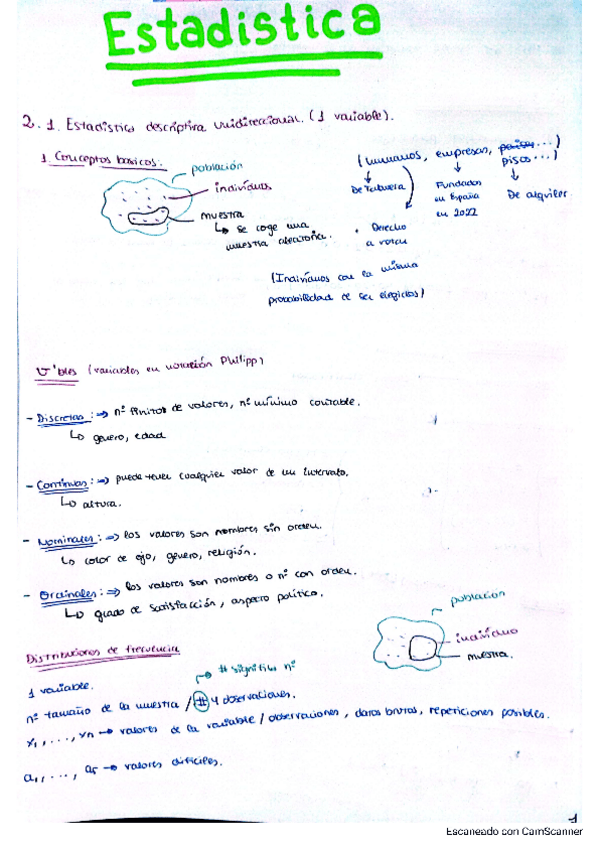 Estadistica
2.1. Estadistica descriptiva unidireccional. (1 variable).
1. Conceptos basicos:
población
individuos
muestra
↳ se coge una
muestra aleatoria.
(humanos, empresas, paises...)
pisos...)
De
Fundadas
en España
en 2022
De alquiler
• Derecho
a votar
(Individuos con la misma
probabilidad de ser elegidos)
V'bles (variables en notación Philipp)
- Discretas: => nº finitos de valores, nº mínimo contable.
↳ genero, edad
- Continuas: => puede tener cualquier valor de un intervalo.
↳ altura.
- Nominales: => los valores son nombres sin orden.
↳ color de ojo, género, religión.
- Ordinales: => los valores son nombres o nº con orden.
↳ grado de satisfacción, aspecto político.
población
individuo
muestra.
Distribuciones de frecuencia
# significa nº
1 variable.
nº tamaño de la muestra / # observaciones.
x1, ..., xn → valores de la variable / observaciones, datos brutos, repeticiones posibles.
a1, ..., → valores
1
Escaneado con CamScanner